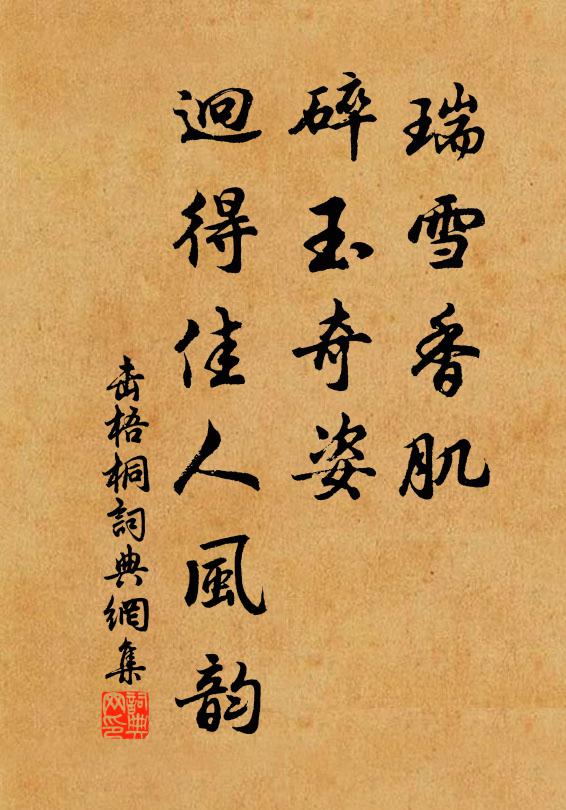 瑞雪香肌
碎玉奇姿
迥得佳人風韵
击梧桐詞典網集
詞典
网印